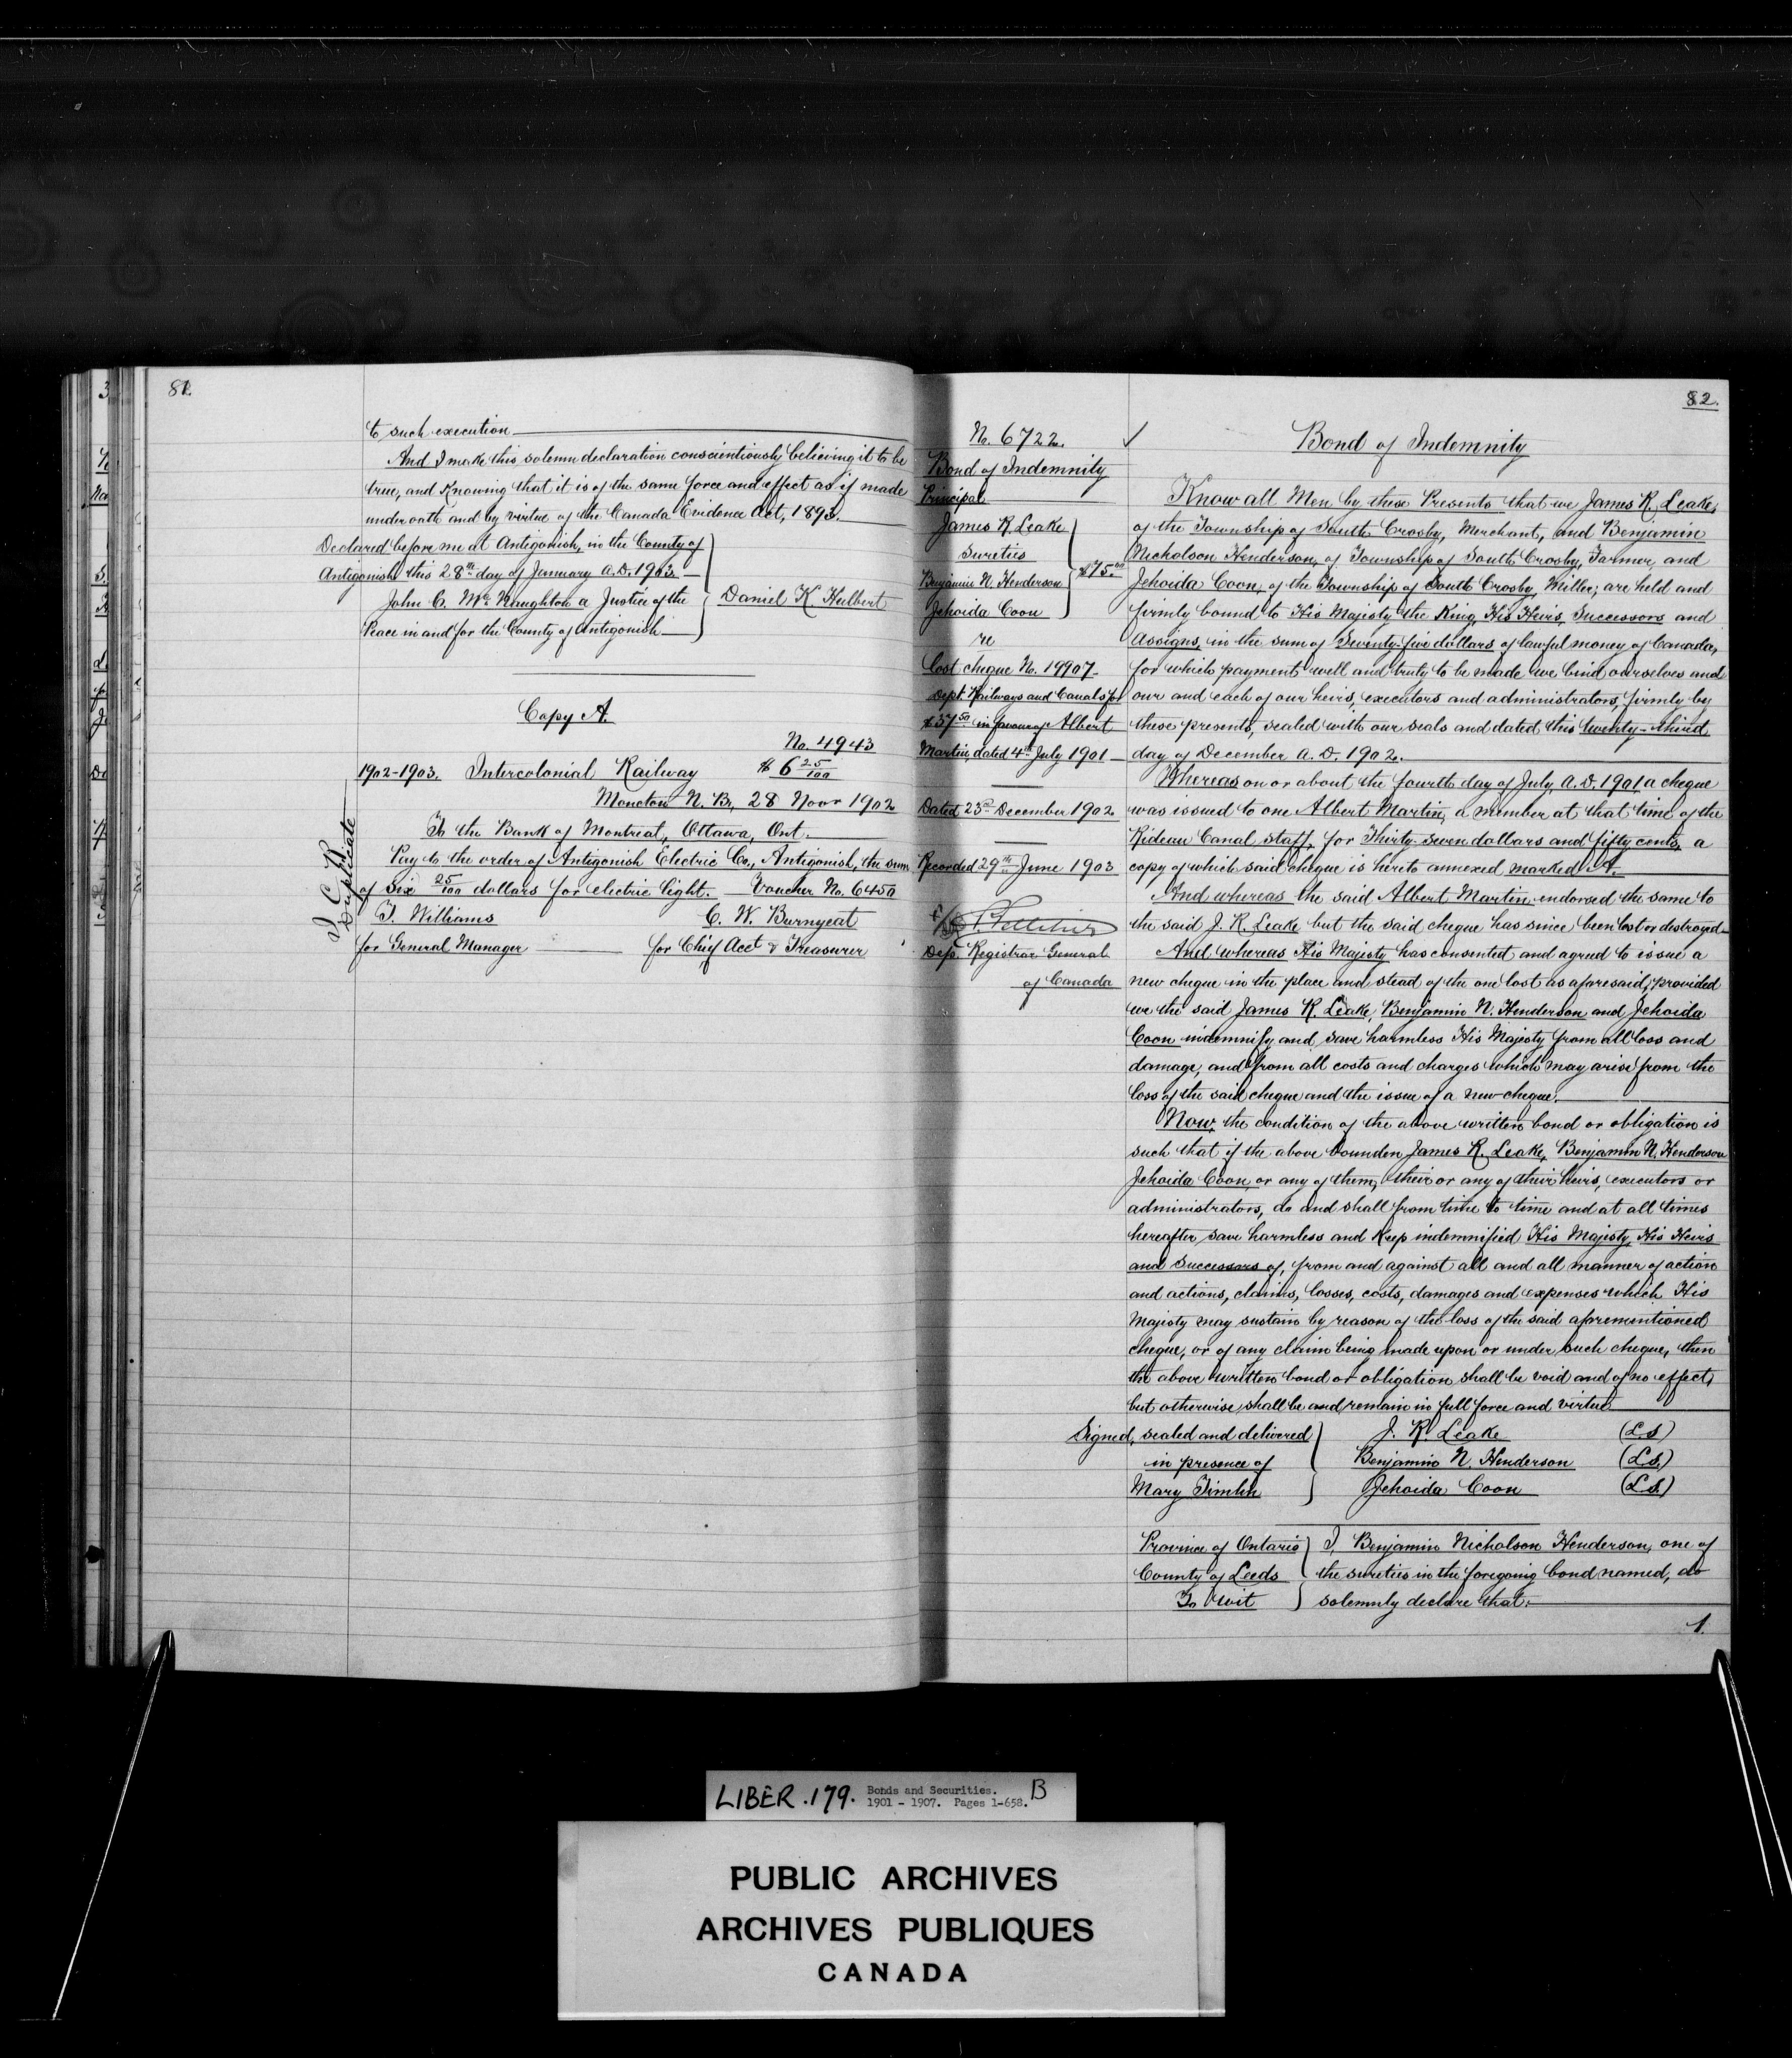 81.
to such execution
And I make this solemn declaration conscientiously believing it to be
true, and knowing that it is of the same force and effect as if made
under oath and by virtue of the Canada Evidence Act, 1893.
Declared before me at Antigonish, in the County of
Antigonish this 28th day of January A.D. 1903.
John C. McNaughton a Justice of the
Peace in and for the County of Antigonish
Daniel K Hulbert
Copy A.
No. 4943
1902-1903. Intercolonial Railway $6 25/100
Moncton N.B., 28 Novr 1902
To the Bank of Montreal, Ottawa, Ont.
Pay to the order of Antigonish Electric Co., Antigonish, the sum
of Six 25/100 dollars for electric light. Voucher No. 6450
T. Williams C. W. Burnyeat
for General Manager for Chief Acct & Treasurer
I. C. R.
Duplicate
82.
No. 6722.
Bond of Indemnity
Principal
James R Leake
Sureties
Benjamin N. Henderson
Jehoida Coon
$75.00
re
Lost cheque No. 19907
Dept Railways and Canals for
$37 50 in favour of Albert
Martin, dated 4th July 1901
Dated 23rd December 1902
Recorded 29th June 1903
Dep. Registrar General
of Canada
Bond of Indemnity
Know all Men by these Presents that we James R. Leake,
of the Township of South Crosby, Merchant, and Benjamin
Nicholson Henderson, of Township of South Crosby, Farmer, and
Jehoida Coon, of the Township of South Crosby, Miller, are held and
firmly bound to His Majesty the King, His Heirs, Successors and
Assigns, in the sum of Seventy-five dollars of lawful money of Canada,
for which payment well and truly to be made we bind ourselves and
our and each of our heirs, executors and administrators, firmly by
these presents, sealed with our seals and dated this twenty-third
day of December A.D. 1902.
Whereas on or about the fourth day of July, A.D. 1901, a cheque
was issued to one Albert Martin, a member at that time of the
Rideau Canal Staff, for Thirty-seven dollars and fifty cents, a
copy of which said cheque is hereto annexed marked A.
And whereas the said Albert Martin endorsed the same to
the said J. R. Leake but the said cheque has since been lost or destroyed
And whereas His Majesty has consented and agreed to issue a
new cheque in the place and stead of the one lost as aforesaid, provided
we the said James R. Leake, Benjamin N. Henderson and Jehoida
Coon indemnify and save harmless His Majesty from all loss and
damage, and from all costs and charges which may arise from the
loss of the said cheque and the issue of a new cheque.
Now, the condition of the above written bond or obligation is
such that if the above bounden James R. Leake, Benjamin N. Henderson
Jehoida Coon, or any of them, their or any of their heirs, executors or
administrators, do and shall from time to time and at all times
hereafter save harmless and keep indemnified His Majesty, His Heirs
and Successors of, from and against all and all manner of action
and actions, claims, losses, costs, damages and expenses which His
Majesty may sustain by reason of the loss of the said aforementioned
cheque, or of any claim being made upon or under such cheque, then
the above written bond or obligation shall be void and of no effect,
but otherwise shall be and remain in full force and virtue.
Signed, sealed and delivered
in presence of
Mary Timlin
J. R. Leake (L.S)
Benjamin N. Henderson (L.S.)
Jehoida Coon (L.S.)
Province of Ontario
County of Leeds
To Wit
I, Benjamin Nicholson Henderson, one of
the sureties in the foregoing bond named, do
solemnly declare that:
1.
LIBER.179. Bonds and Securities. B
1901 - 1907. Pages 1-658.
PUBLIC ARCHIVES
ARCHIVES PUBLIQUES
CANADA